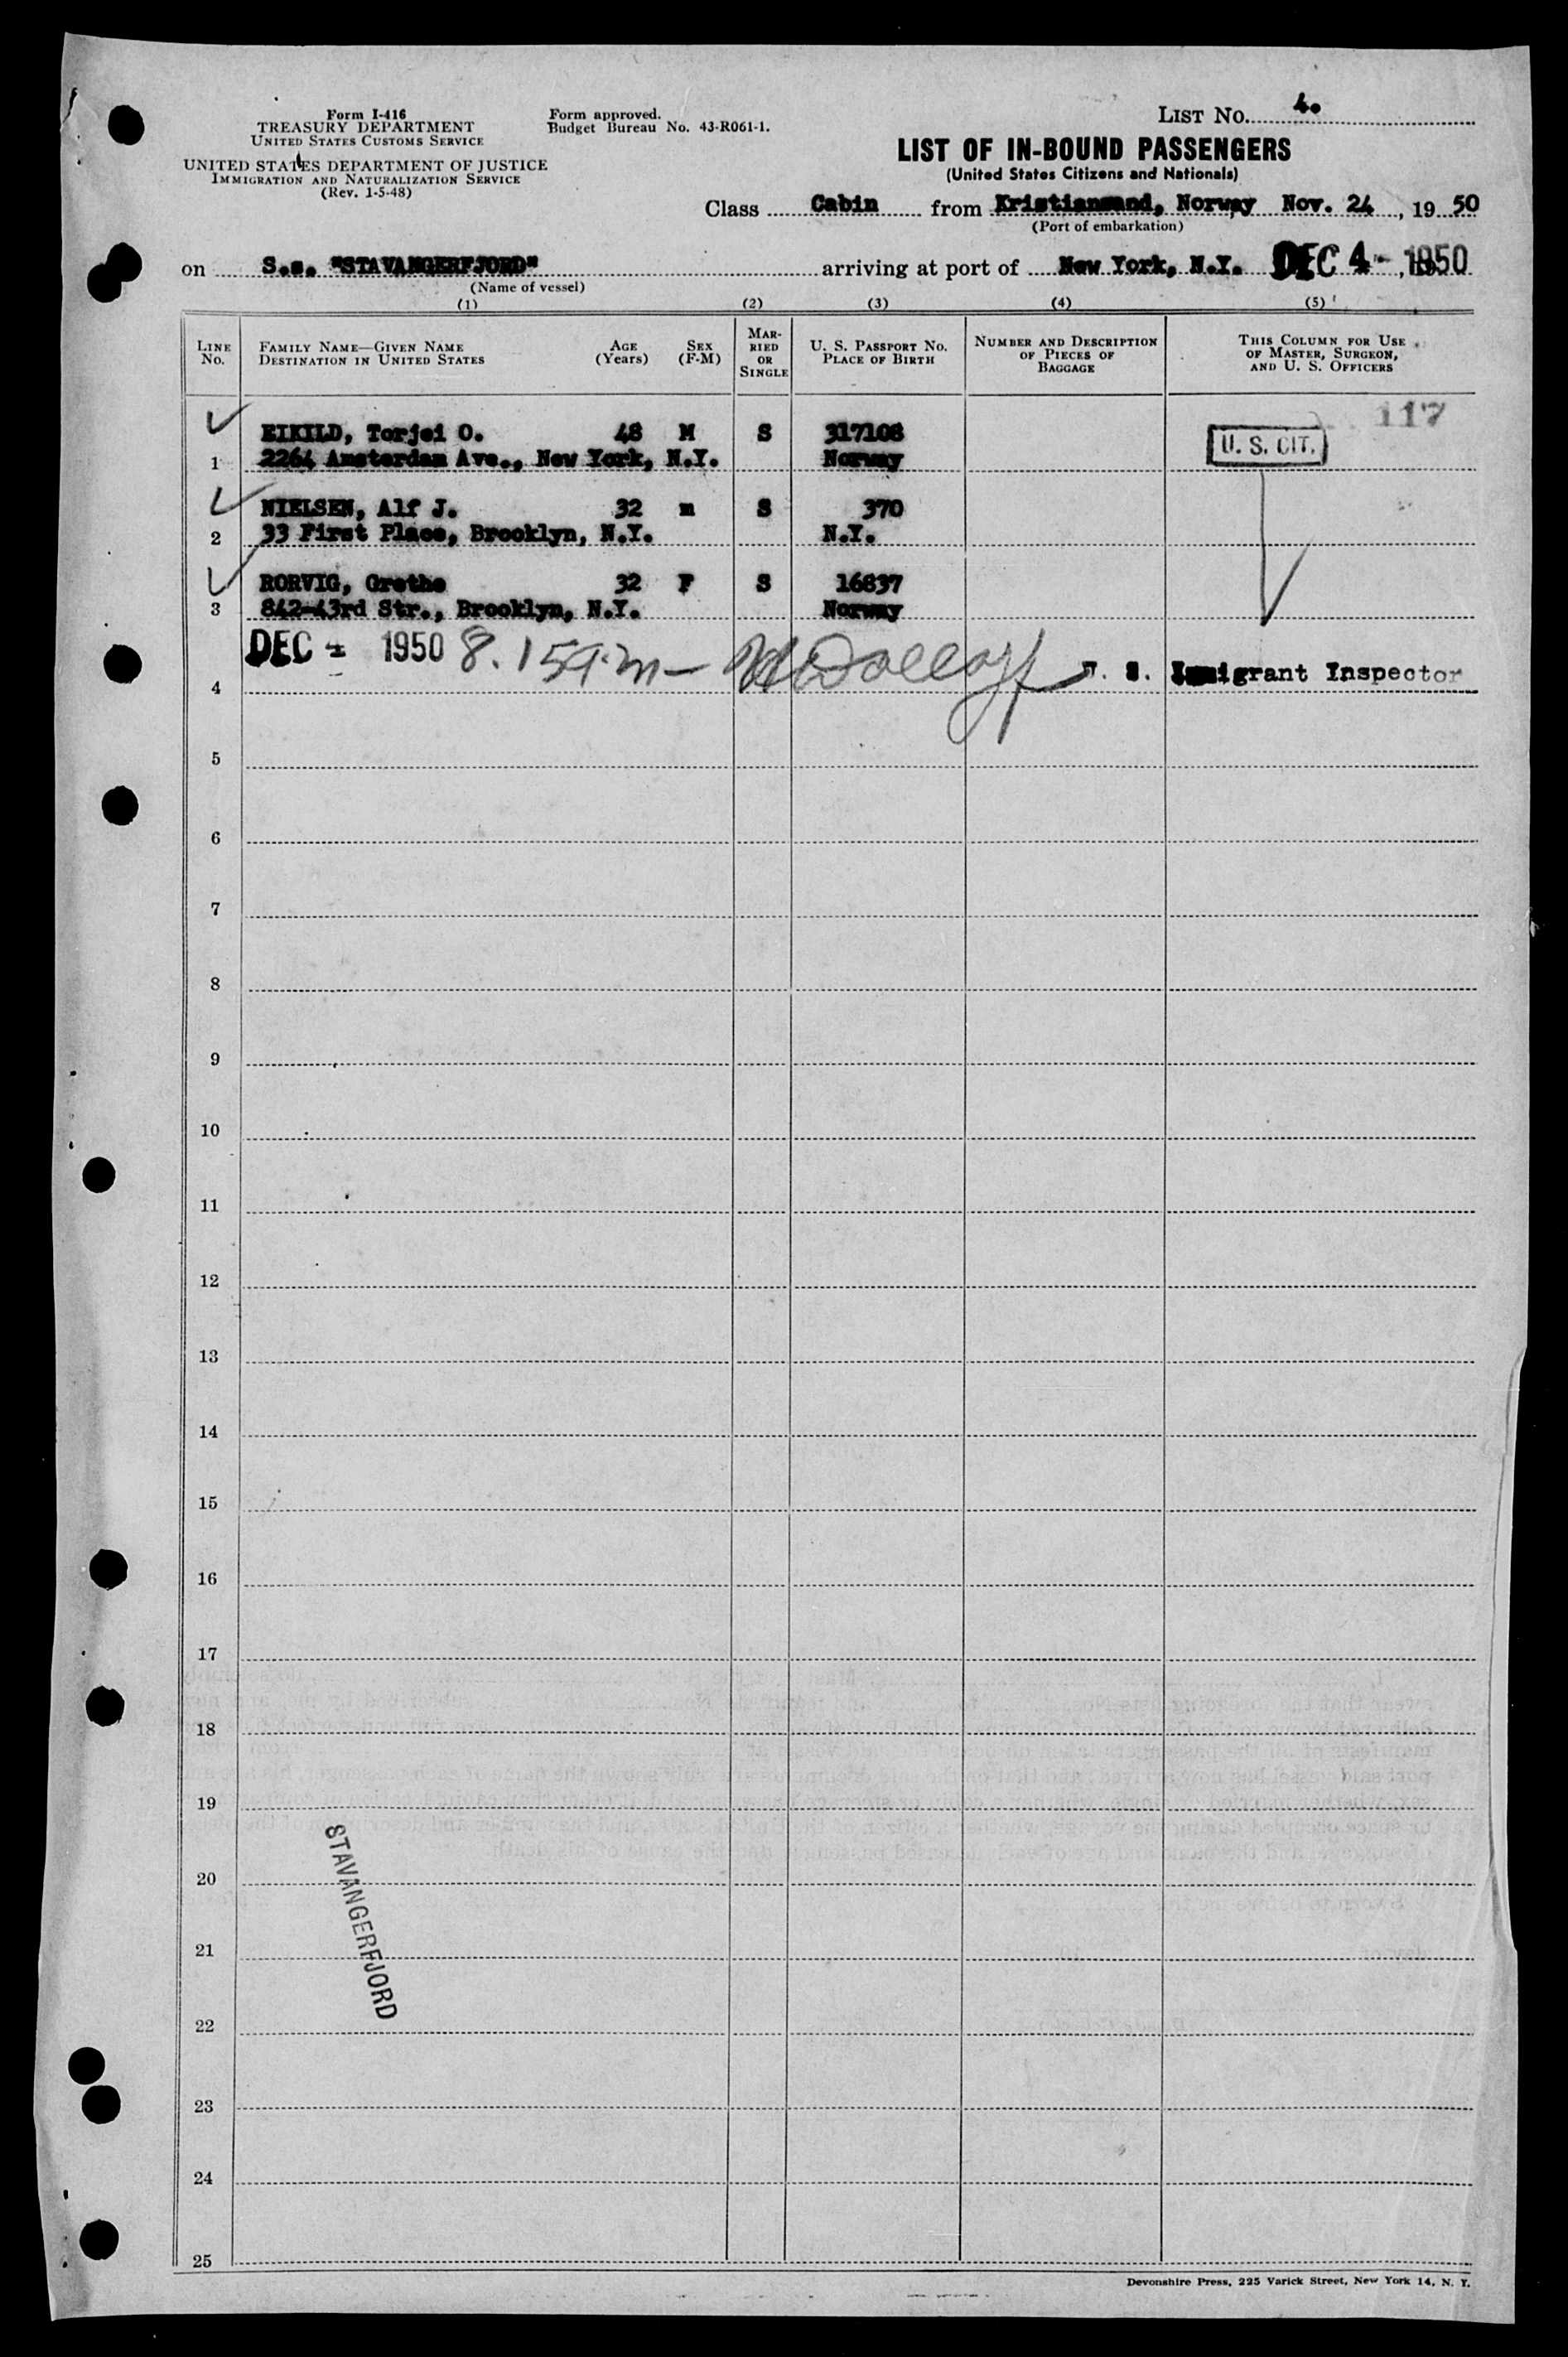 Form I-416
TREASURY DEPARTMENT
UNITED STATES CUSTOMS SERVICE
UNITED STATES DEPARTMENT OF JUSTICE
IMMIGRATION AND NATURALIZATION SERVICE
(Rev. 1-5-48)
Form approved.
Budget Bureau No. 43-R061-1.
LIST NO. 4.
LIST OF IN-BOUND PASSENGERS
(United States Citizens and Nationals)
Class Cabin from Kristiansand, Norway Nov. 24, 1950
(Port of embarkation)
on S.s. "STAVANGERFJORD" arriving at port of New York, N.Y. DEC 4 - 1950
(Name of vessel)
(1) (2) (3) (4) (5)
LINE NO. FAMILY NAME—GIVEN NAME DESTINATION IN UNITED STATES AGE (Years) SEX (F-M) MARRIED OR SINGLE U. S. PASSPORT NO. PLACE OF BIRTH NUMBER AND DESCRIPTION OF PIECES OF BAGGAGE THIS COLUMN FOR USE OF MASTER, SURGEON, AND U. S. OFFICERS
117
EIKILD, Torjei O. 48 M S 317108 U. S. CIT.
1 2264 Amsterdam Ave., New York, N.Y. Norway
NIELSEN, Alf J. 32 m S 370
2 33 First Place, Brooklyn, N.Y. N.Y.
RORVIG, Grethe 32 F S 16837
3 842-43rd Str., Brooklyn, N.Y. Norway
DEC 4 1950 8.15 a.m— U. S. Immigrant Inspector
4
5
6
7
8
9
10
11
12
13
14
15
16
17
18
19
20
STAVANGERFJORD
21
22
23
24
25
Devonshire Press, 225 Varick Street, New York 14, N. Y.